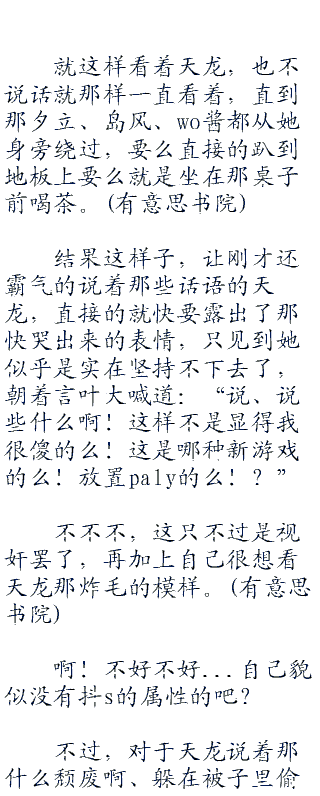 就这样看着天龙，也不
说话就那样一直看着，直到
那夕立、岛风、wo酱都从她
身旁绕过，要么直接的趴到
地板上要么就是坐在那桌子
前喝茶。(有意思书院)
结果这样子，让刚才还
霸气的说着那些话语的天
龙，直接的就快要露出了那
快哭出来的表情，只见到她
似乎是实在坚持不下去了，
朝着言叶大喊道：“说、说
些什么啊！这样不是显得我
很傻的么！这是哪种新游戏
的么！放置paly的么！？”
不不不，这只不过是视
奸罢了，再加上自己很想看
天龙那炸毛的模样。(有意思
书院)
啊！不好不好...自己貌
似没有抖s的属性的吧？
不过，对于天龙说着那
什么颓废啊、躲在被子里偷